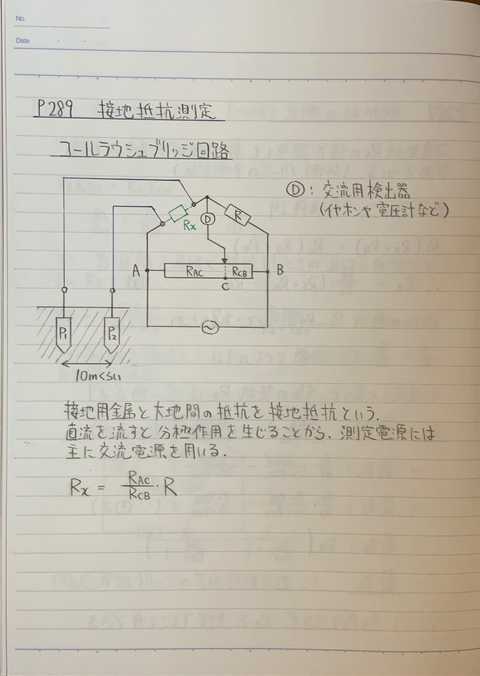 No.
Date
P289 接地抵抗測定
コールラウシュブリッジ回路
Ⓓ: 交流用検出器
(イヤホンや電圧計など)
Rx
D
R
A
RAC
RCB
B
C
P1
P2
10mくらい
接地用金属と大地間の抵抗を接地抵抗という.
直流を流すと分極作用を生じることから、測定電源には
主に交流電源を用いる.
Rx = RAC/RCB・R